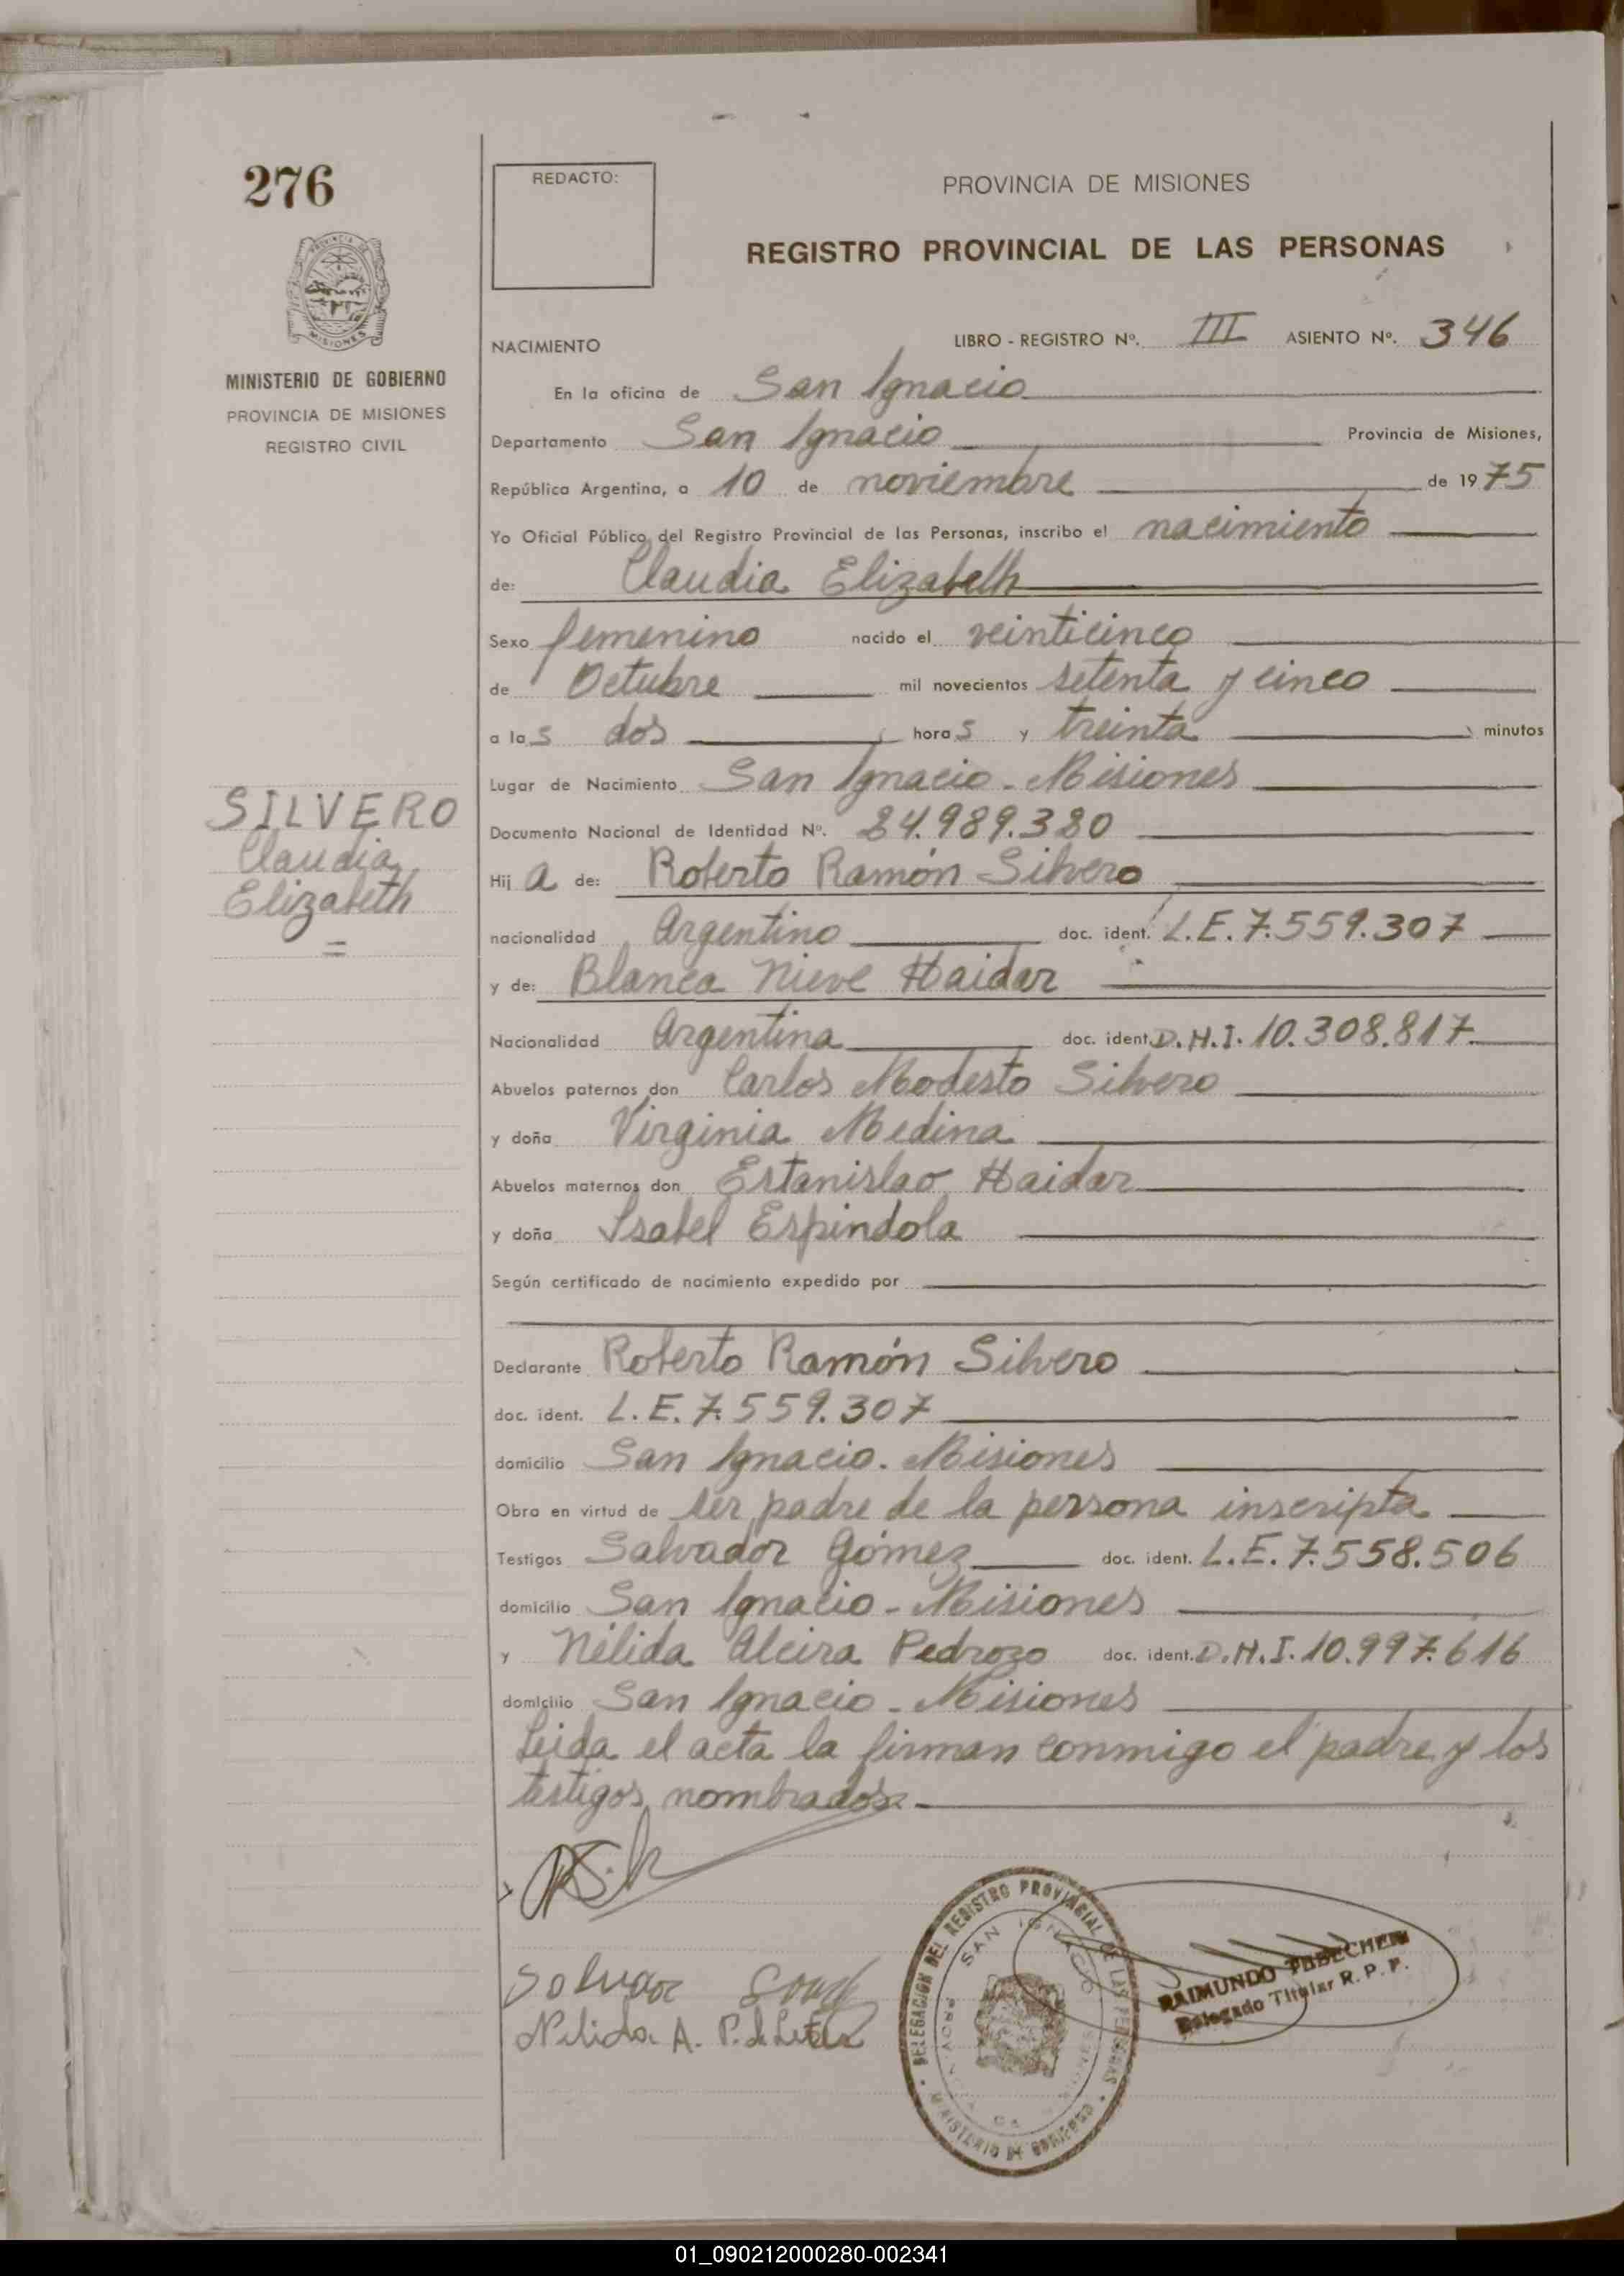 276
REDACTO:
PROVINCIA DE MISIONES
REGISTRO PROVINCIAL DE LAS PERSONAS
MINISTERIO DE GOBIERNO
PROVINCIA DE MISIONES
REGISTRO CIVIL
NACIMIENTO LIBRO - REGISTRO Nº. III ASIENTO Nº. 346
En la oficina de San Ignacio
Departamento San Ignacio Provincia de Misiones,
República Argentina, a 10 de noviembre de 1975
Yo Oficial Público del Registro Provincial de las Personas, inscribo el nacimiento
de: Claudia Elizabeth
Sexo femenino nacido el veinticinco
de Octubre mil novecientos setenta y cinco
a las dos horas y treinta minutos
Lugar de Nacimiento San Ignacio - Misiones
SILVERO
Claudia
Elizabeth
Documento Nacional de Identidad Nº. 24.989.380
Hija de: Roberto Ramón Silvero
nacionalidad Argentino doc. ident. L.E. 7.559.307
y de: Blanca Nieve Haidar
Nacionalidad Argentina doc. ident. D.N.I. 10.308.817
Abuelos paternos don Carlos Modesto Silvero
y doña Virginia Medina
Abuelos maternos don Estanislao Haidar
y doña Isabel Espindola
Según certificado de nacimiento expedido por
Declarante Roberto Ramón Silvero
doc. ident. L.E. 7.559.307
domicilio San Ignacio. Misiones
Obra en virtud de ser padre de la persona inscripta
Testigos Salvador Gómez doc. ident. L.E. 7.558.506
domicilio San Ignacio - Misiones
y Nélida Alcira Pedrozo doc. ident. D.N.I. 10.997.616
domicilio San Ignacio - Misiones
Leida el acta la firman conmigo el padre y los
testigos nombrados.
Nelida A. P. de
DELEGACION DEL REGISTRO PROVINCIAL DE LAS PERSONAS
SAN IGNACIO
MINISTERIO DE GOBIERNO
RAIMUNDO
Delegado Titular R. P. P.
01_090212000280-002341